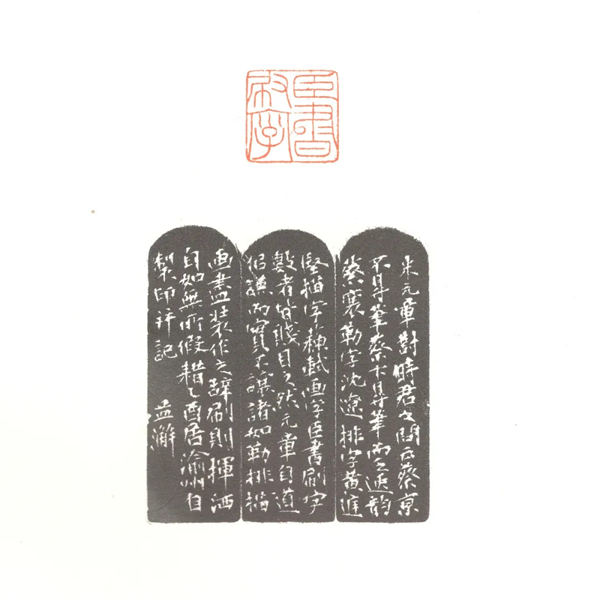 臣書
刷字
米元章對時君之問云蔡京
不得筆蔡卞得筆而乏逸韵
蔡襄勒字沈遼排字黃庭
堅描字蘇軾画字臣書刷字
數者皆賤目之然元章自道
佀謙而實不謙諸如勒排描
画盡裝作之辭刷則揮洒
自如無所假耤乙酉居渝州自
製印并記 益瀚